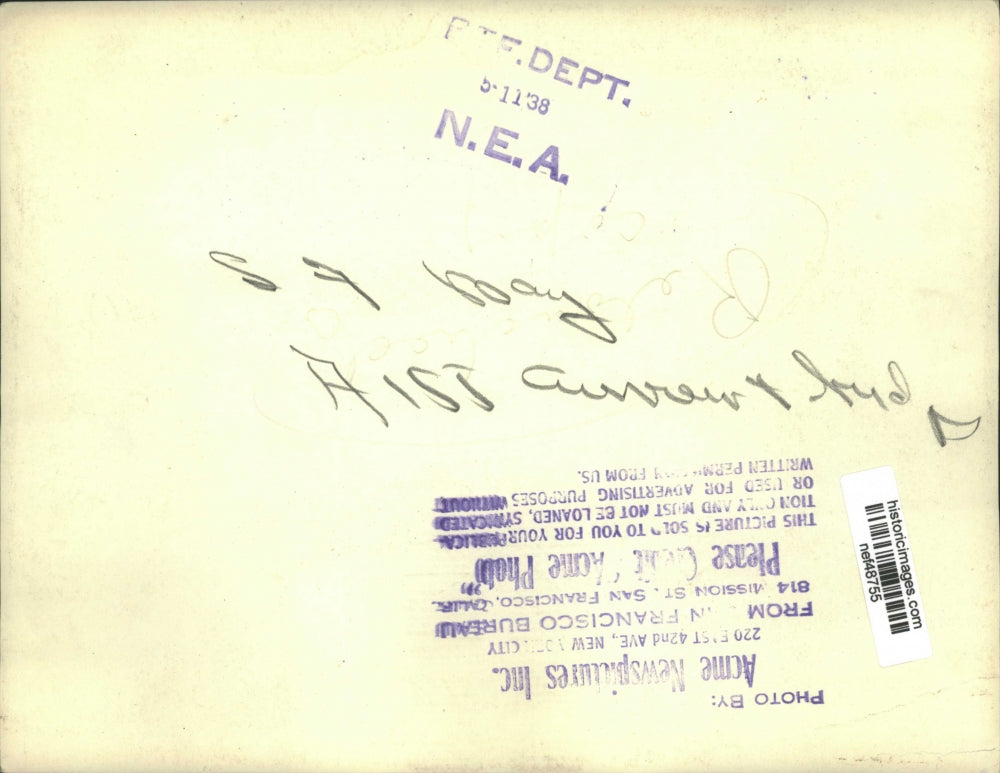 REF. DEPT.
5-11'38
N.E.A.
S F Bay
A 1ST
PHOTO BY:
Acme Newspictures Inc.
220 EAST 42nd AVE, NEW YORK CITY
FROM SAN FRANCISCO BUREAU
814 MISSION ST. SAN FRANCISCO, CALIF.
Please Credit "Acme Photo"
THIS PICTURE IS SOLD TO YOU FOR YOUR PUBLICA-
TION ONLY AND MUST NOT BE LOANED, SYNDICATED
OR USED FOR ADVERTISING PURPOSES WITHOUT
WRITTEN PERMISSION FROM US.
historicimages.com
nef48755